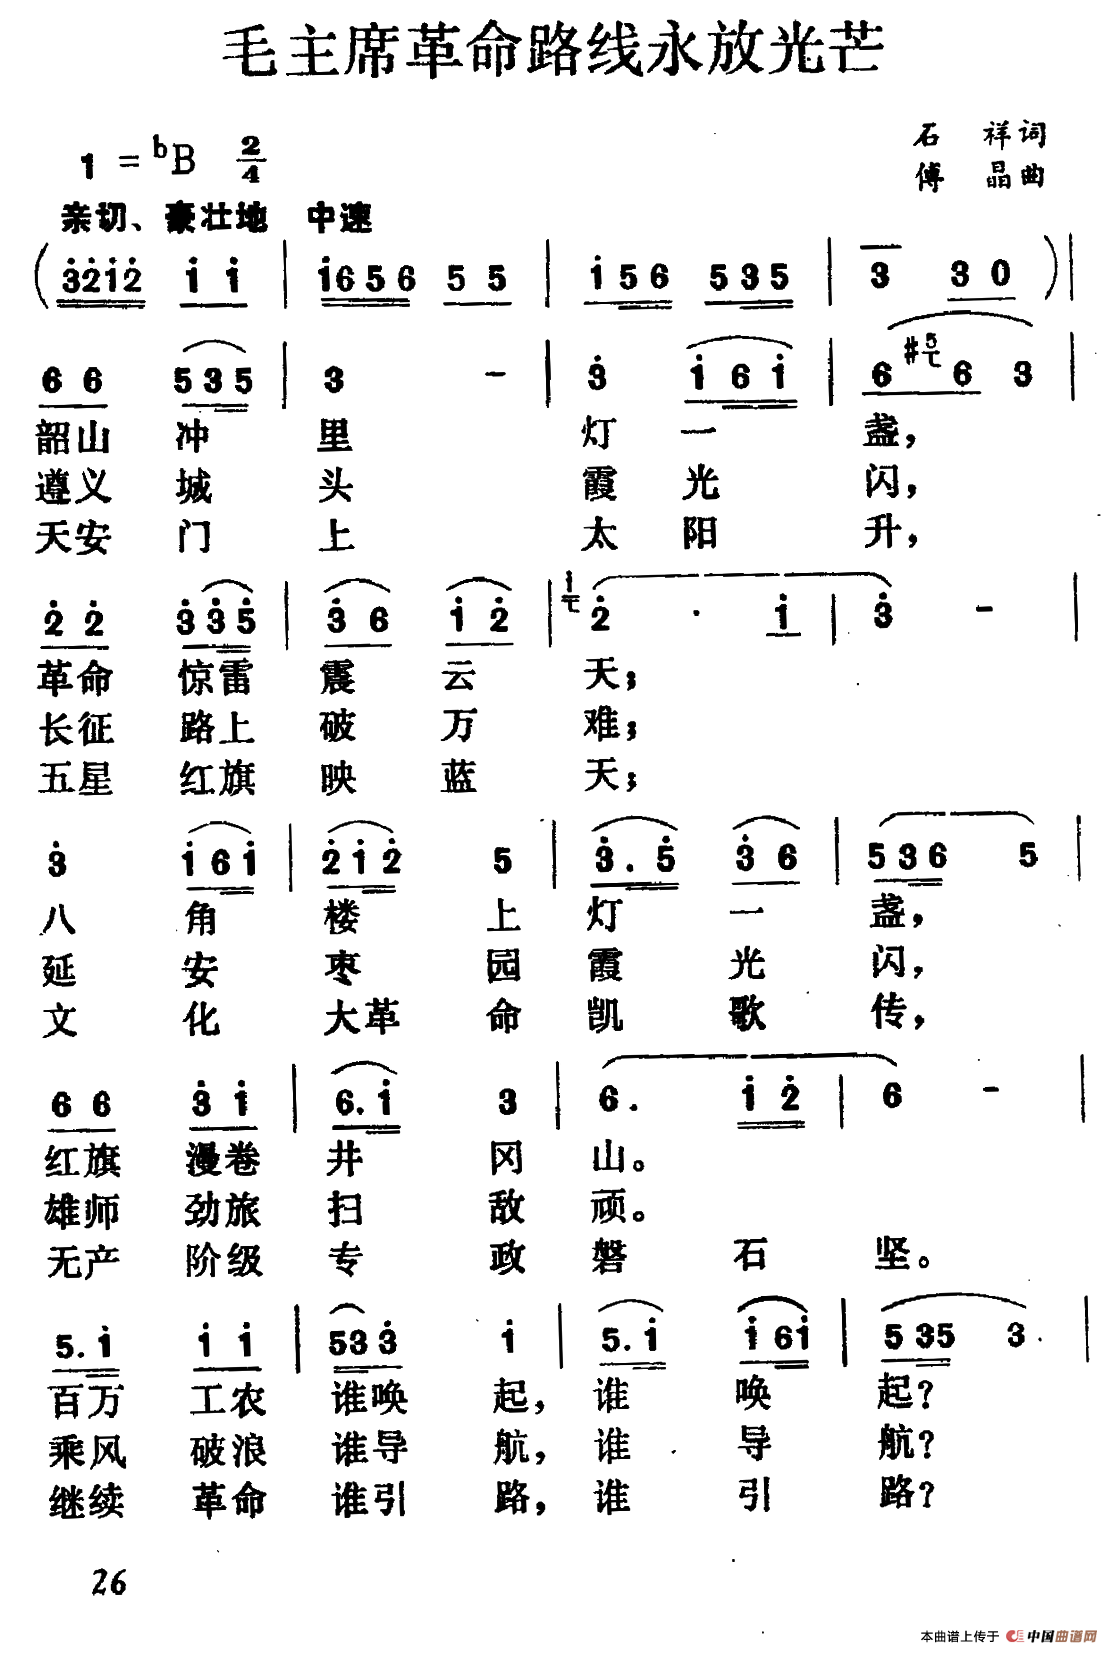 毛主席革命路线永放光芒
石 祥词
傅 晶曲
1 = ♭B 2/4
亲切、豪壮地 中速
(3̇2̇1̇2̇ 1̇ 1̇ | 1̇656 5 5 | 1̇56 535 | 3 3 0 ) |
6 6 535 | 3 - | 3̇ 1̇61̇ | 6 #5 6 3 |
韶山 冲 里 灯 一 盏，
遵义 城 头 霞 光 闪，
天安 门 上 太 阳 升，
2̇ 2̇ 3̇3̇5̇ | 3̇ 6 1̇ 2̇ | 1̇ 2̇ · 1̇ | 3̇ - |
革命 惊雷 震 云 天；
长征 路上 破 万 难；
五星 红旗 映 蓝 天；
3̇ 1̇61̇ | 2̇1̇2̇ 5 | 3̇.5̇ 3̇ 6 | 536 5 |
八 角 楼 上 灯 一 盏，
延 安 枣 园 霞 光 闪，
文 化 大革 命 凯 歌 传，
6 6 3̇ 1̇ | 6.1̇ 3 | 6. 1̇ 2̇ | 6 - |
红旗 漫卷 井 冈 山。
雄师 劲旅 扫 敌 顽。
无产 阶级 专 政 磐 石 坚。
5.1̇ 1̇ 1̇ | 533̇ 1̇ | 5.1̇ 1̇61̇ | 535 3. |
百万 工农 谁唤 起，谁 唤 起？
乘风 破浪 谁导 航，谁 导 航？
继续 革命 谁引 路，谁 引 路？
26
本曲谱上传于 中国曲谱网